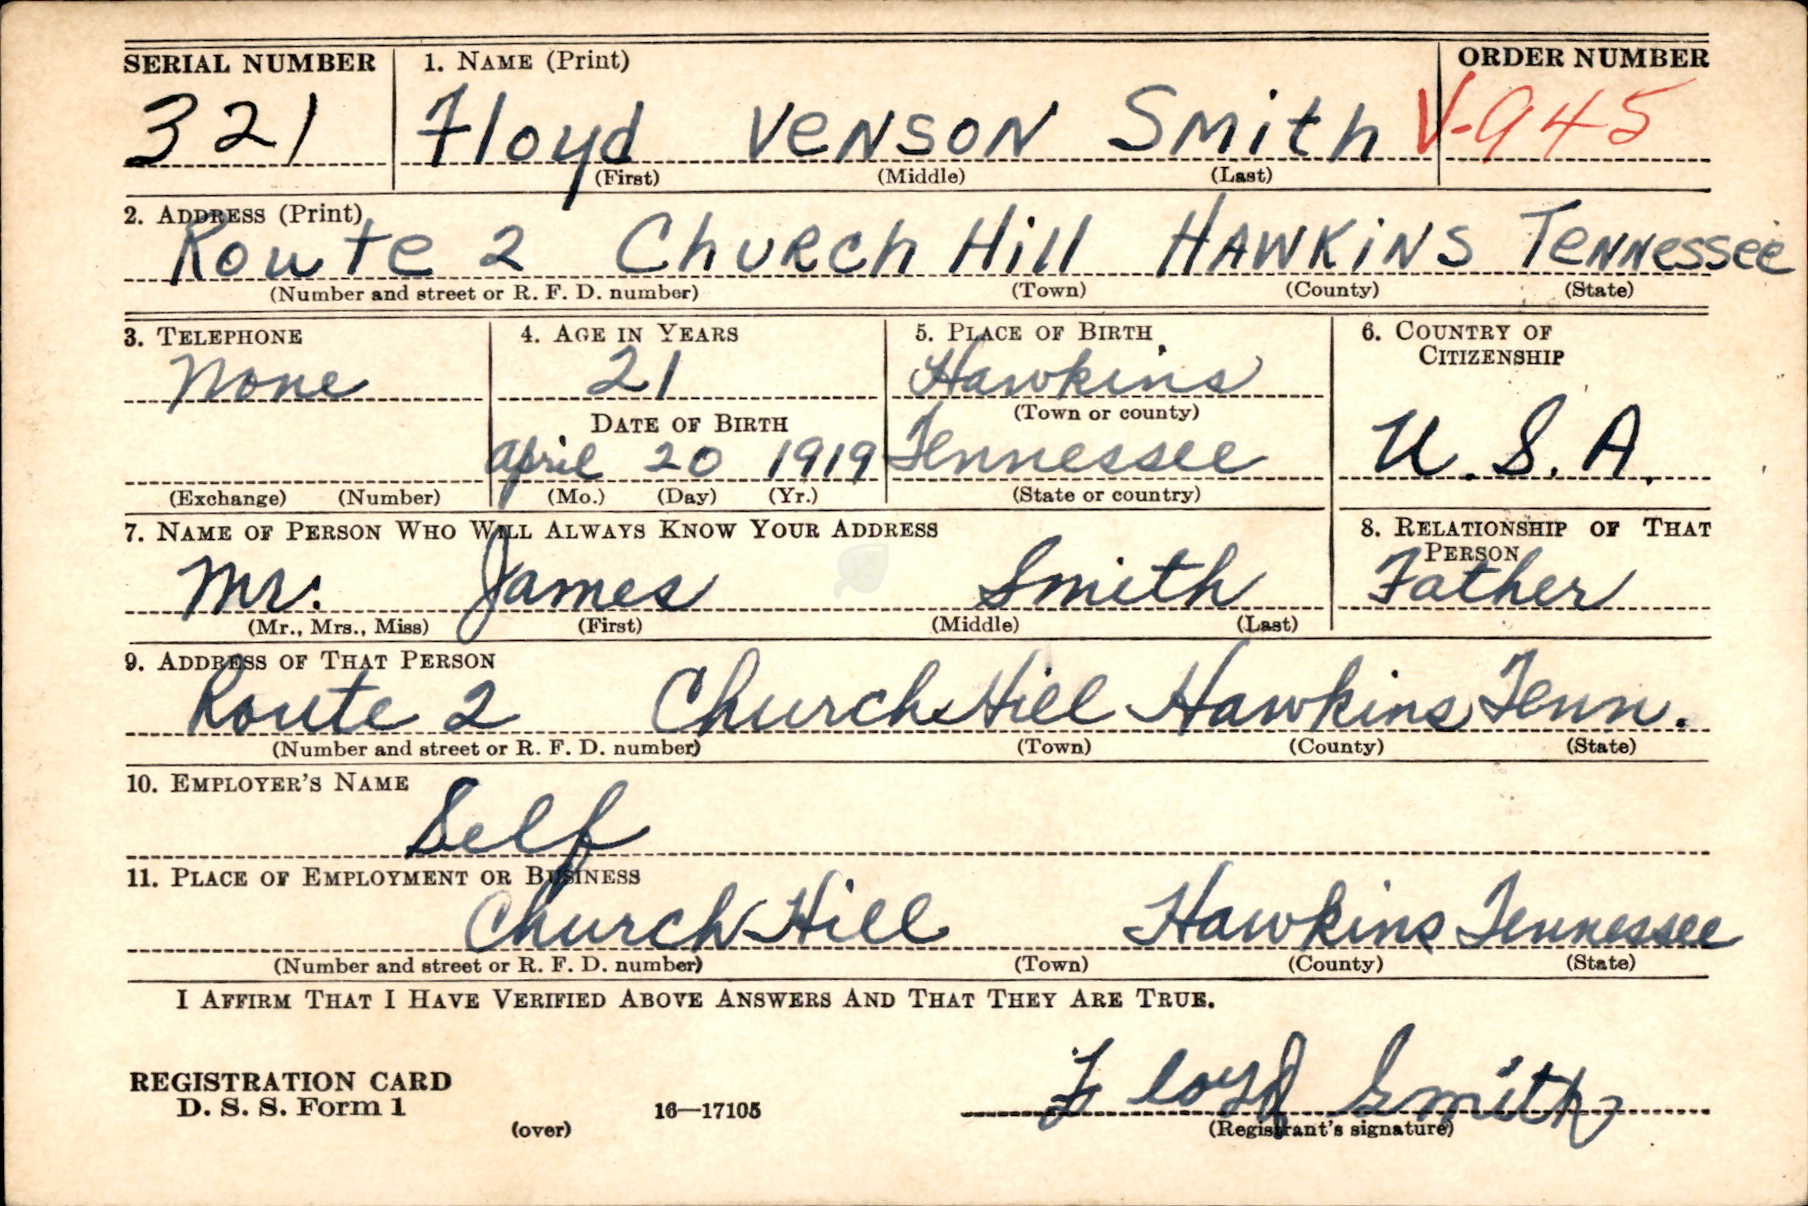 SERIAL NUMBER 1. NAME (Print) ORDER NUMBER
321 Floyd VENSON Smith V-945
(First) (Middle) (Last)
2. ADDRESS (Print)
Route 2 Church Hill HAWKINS Tennessee
(Number and street or R. F. D. number) (Town) (County) (State)
3. TELEPHONE 4. AGE IN YEARS 5. PLACE OF BIRTH 6. COUNTRY OF
CITIZENSHIP
None 21 Hawkins
(Town or county)
DATE OF BIRTH
april 20 1919 Tennessee U.S.A.
(Exchange) (Number) (Mo.) (Day) (Yr.) (State or country)
7. NAME OF PERSON WHO WILL ALWAYS KNOW YOUR ADDRESS 8. RELATIONSHIP OF THAT
PERSON
Mr. James Smith Father
(Mr., Mrs., Miss) (First) (Middle) (Last)
9. ADDRESS OF THAT PERSON
Route 2 Church Hill Hawkins Tenn.
(Number and street or R. F. D. number) (Town) (County) (State)
10. EMPLOYER'S NAME
Self
11. PLACE OF EMPLOYMENT OR BUSINESS
Church Hill Hawkins Tennessee
(Number and street or R. F. D. number) (Town) (County) (State)
I AFFIRM THAT I HAVE VERIFIED ABOVE ANSWERS AND THAT THEY ARE TRUE.
Floyd Smith
REGISTRATION CARD
D. S. S. Form 1 16—17105
(over) (Registrant's signature)